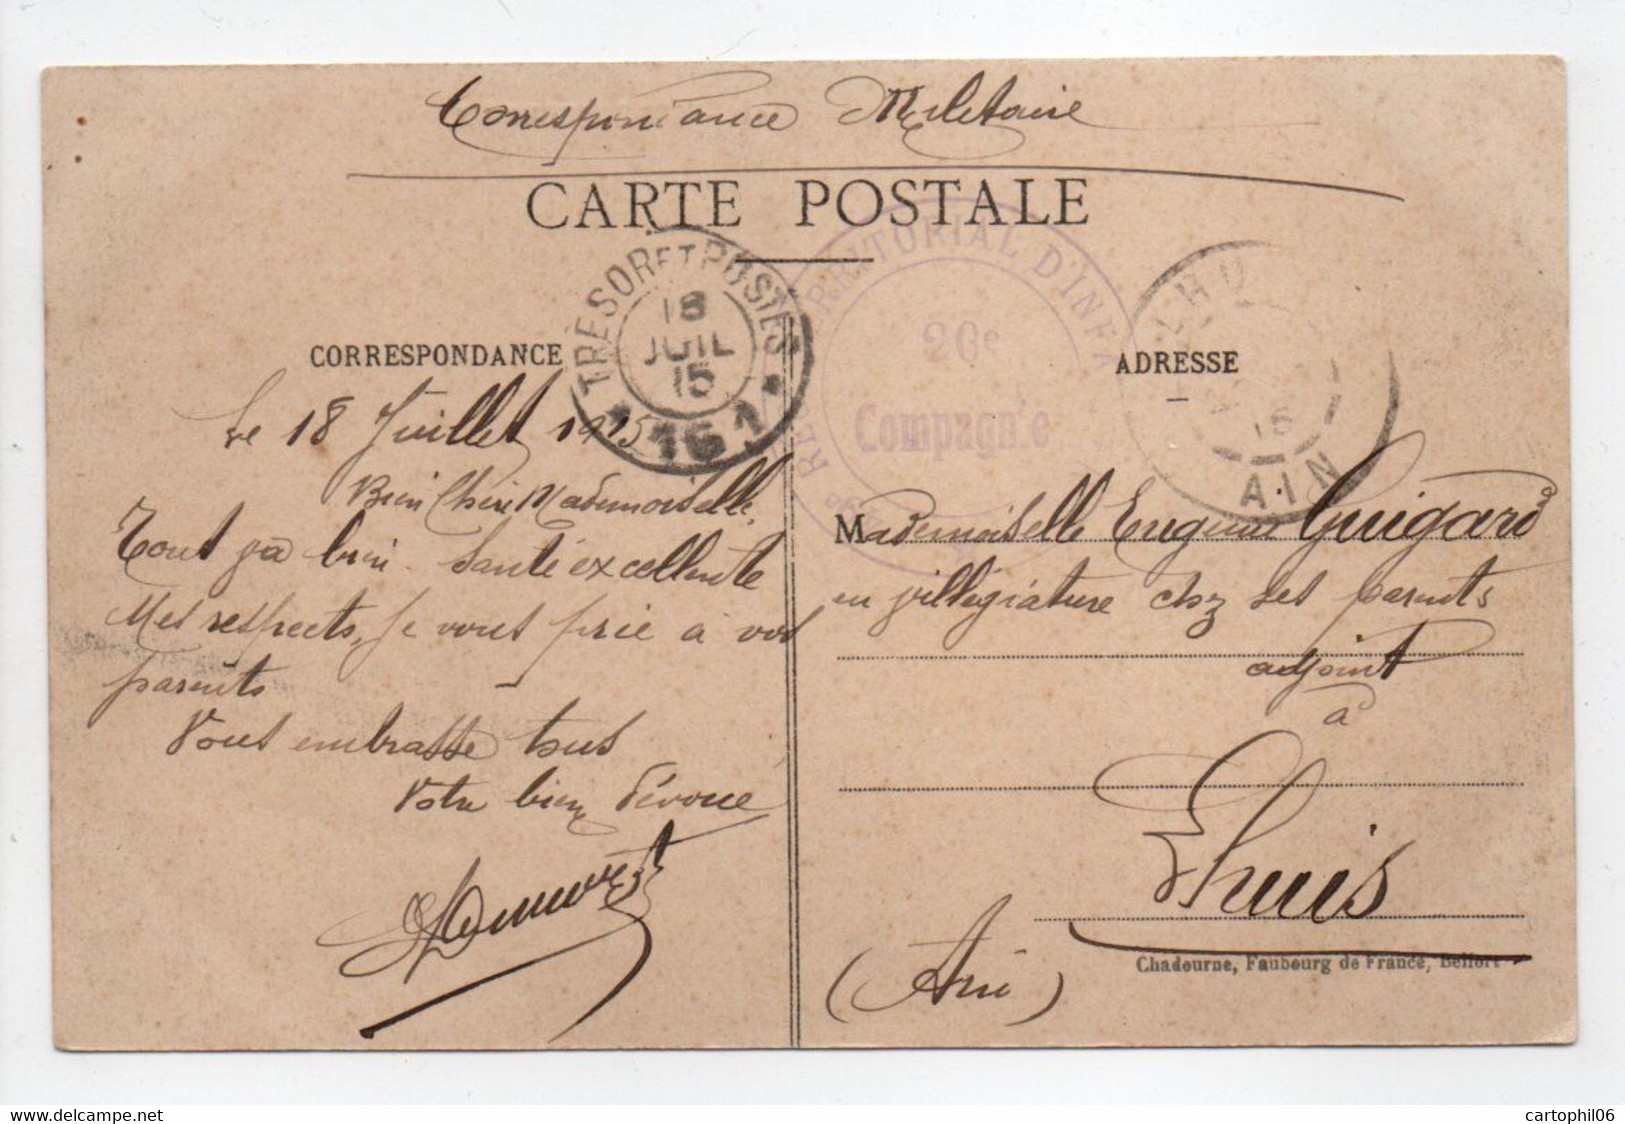 Correspondance Militaire
CARTE POSTALE
TRESOR ET POSTES
18
JUIL
15
* 161 *
TERRITORIAL D'INF
20e
Compagnie
LHU
15
AIN
CORRESPONDANCE
ADRESSE
Le 18 Juillet 1915
Bien Chère Mademoiselle,
Tout va bien. Santé excellente
Mes respects, je vous prie à vos
parents
Vous embrasse tous
Votre bien dévoué
Mademoiselle Eugénie Guigard
en villégiature chez ses parents
adjoint
à
Lhuis
(Ain)
Chadourne, Faubourg de France, Belfort
delcampe.net
cartophil06